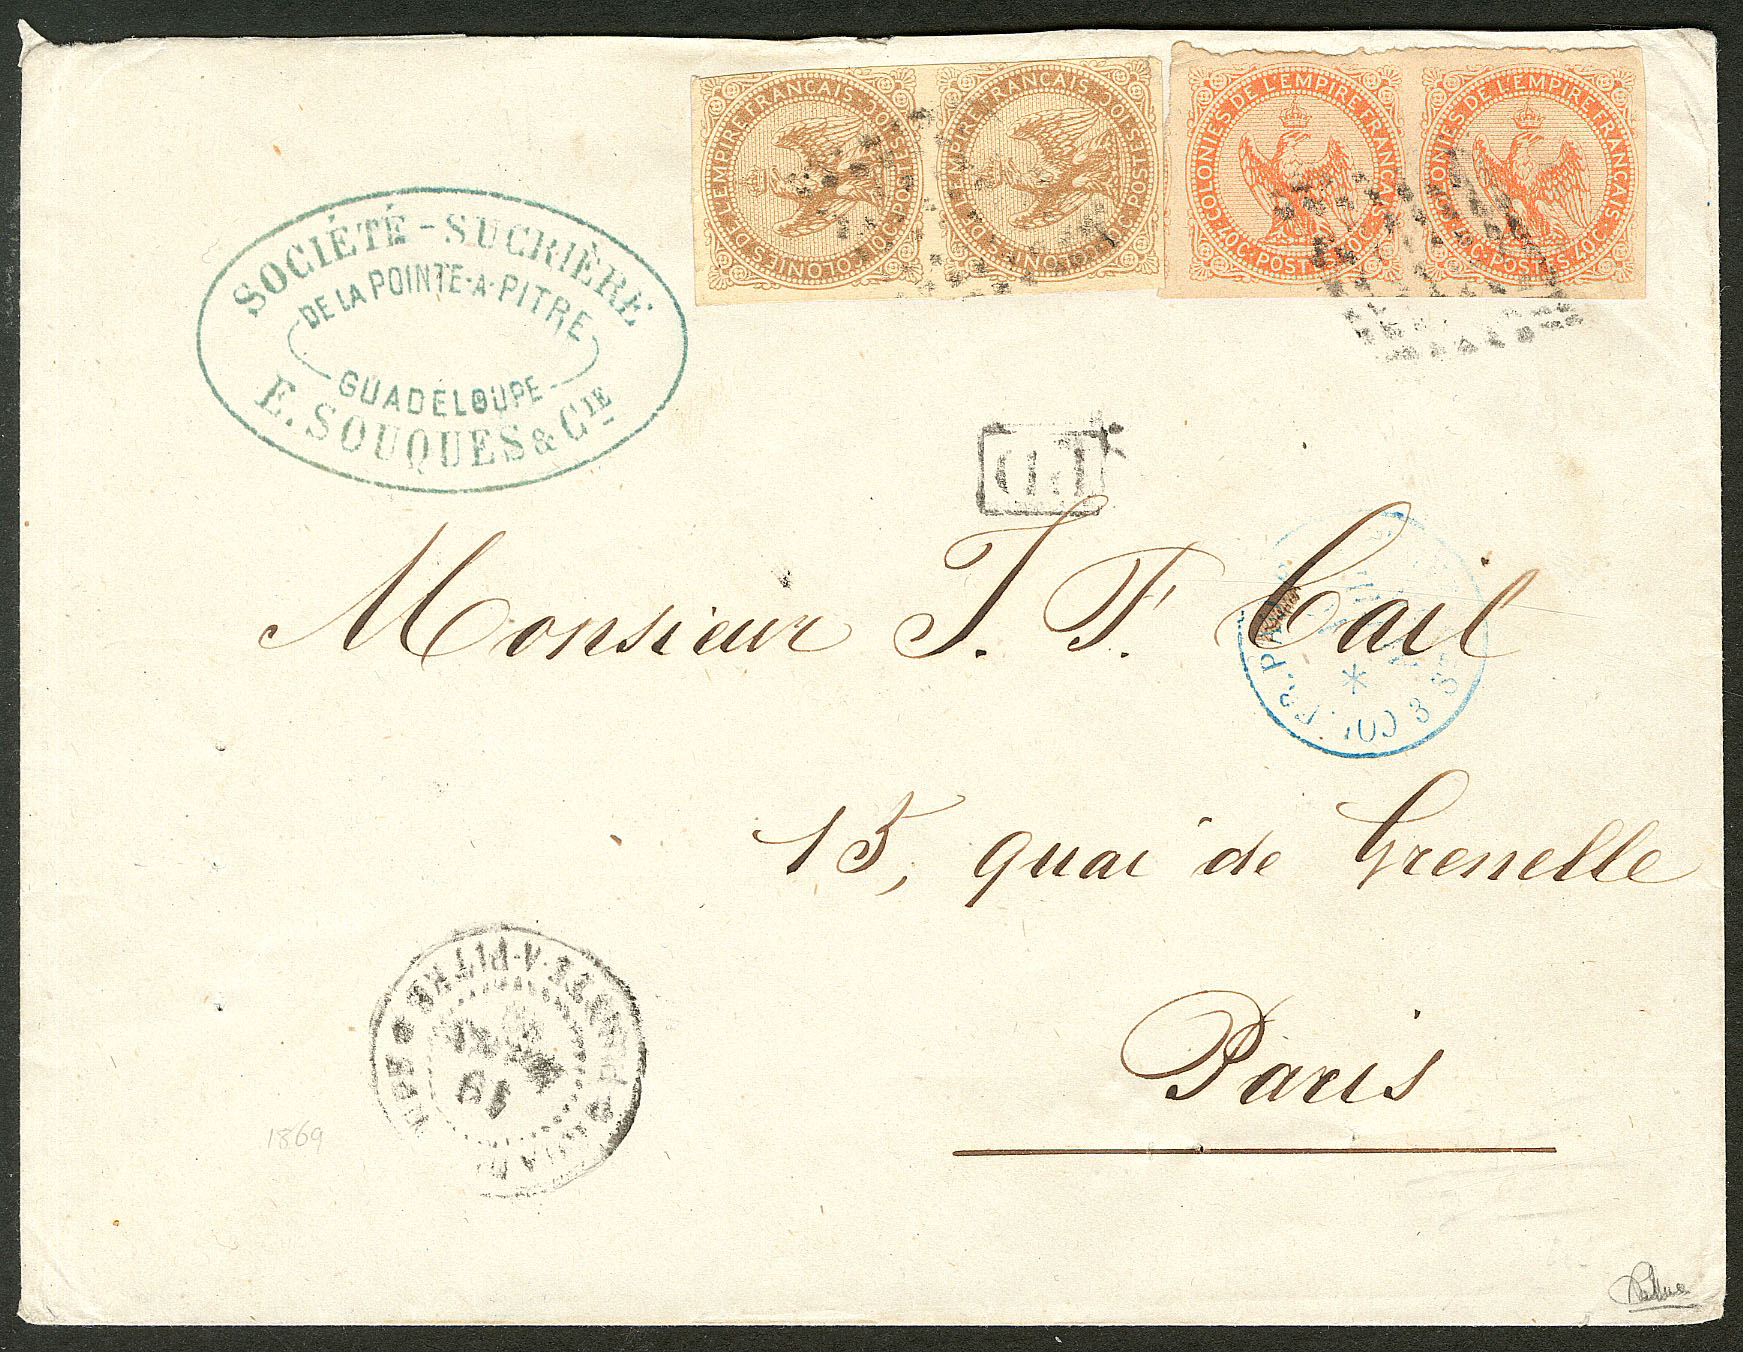 COLONIES DE L'EMPIRE FRANÇAIS · 10C · POSTES · 10C ·
COLONIES DE L'EMPIRE FRANÇAIS · 10C · POSTES · 10C ·
COLONIES DE L'EMPIRE FRANÇAIS · 40C · POSTES · 40C ·
COLONIES DE L'EMPIRE FRANÇAIS · 40C · POSTES · 40C ·
SOCIÉTÉ - SUCRIÈRE
DE LA POINTE-A-PITRE
GUADELOUPE
E. SOUQUES & CIE
P.D.
Monsieur J. F. Cail
COL. FR. PAQ.
15, quai de Grenelle
Paris
POINTE-A-PITRE
1869